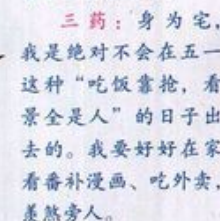 三药：身为宅，
我是绝对不会在五一
这种“吃饭靠抢，看
景全是人”的日子出
去的。我要好好在家
看番补漫画、吃外卖，
羡煞旁人。